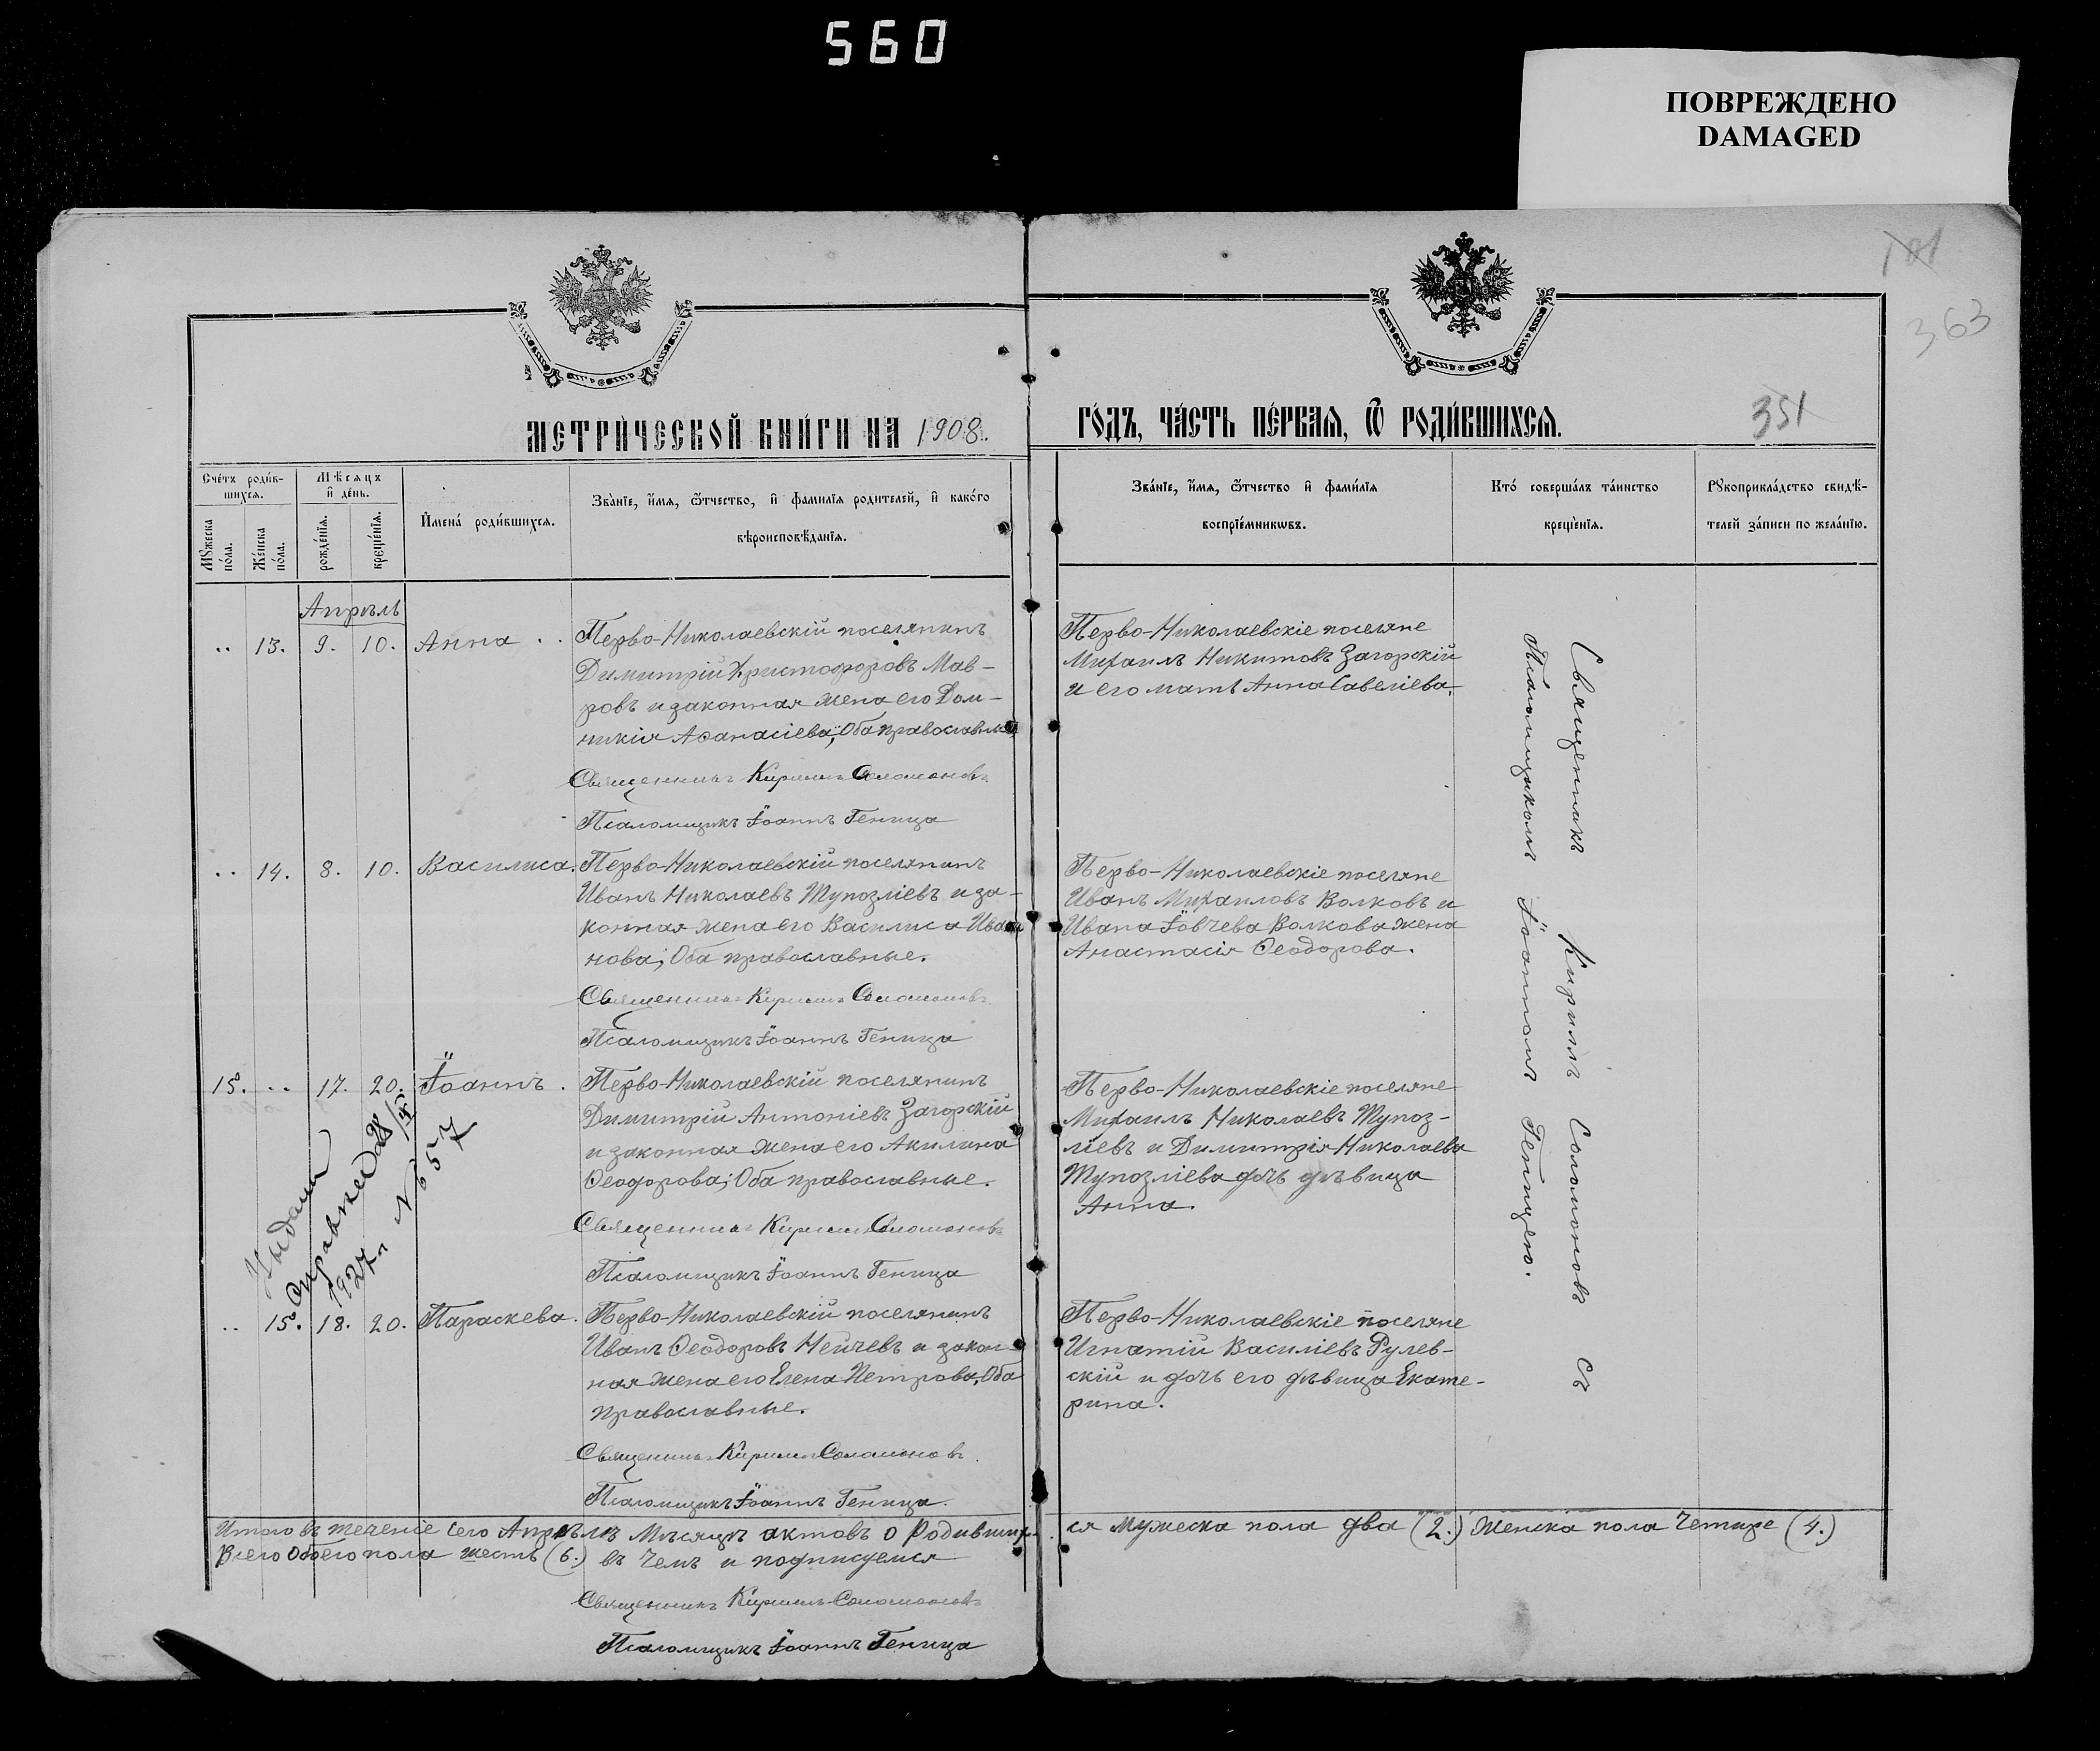 560
ПОВРЕЖДЕНО
DAMAGED
101
363
351
МЕТРИ́ЧЕСКОЙ КНИ́ГИ НА 1908.
ГО́ДЪ, ЧА́СТЬ ПЕ́РВАЯ, Ѿ РОДИ́ВШИХСЯ.
Сче́тъ роди́в-
шихся.
Мѣсяцъ
и҆ де́нь.
Мꙋжеска
по́ла.
Же́нска
по́ла.
рожде́нїя.
креще́нїя.
И҆мена́ роди́вшихся.
Зва́нїе, и҆́мя, ѻ҆́тчество, и҆ фами́лїя родителей, и҆ како́го
вѣроисповѣ́данїя.
Зва́нїе, и҆́мя, ѻ҆́тчество и҆ фами́лїя
воспрїе́мникѡвъ.
Кто́ соверша́лъ та́инство
креще́нїя.
Рꙋкоприкла́дство свидѣ́-
телей за́писи по жела́нїю.
Апрѣль
.. 13. 9. 10. Анна . . Перво-Николаевскій поселянинъ
Димитрій Христофоровъ Мав-
ровъ и законная жена его Дом-
никія Аѳанасіева; Оба православные
Священникъ Кириллъ Соломоновъ
Псаломщикъ Іоаннъ Геница
Перво-Николаевскіе поселяне
Михаилъ Никитовъ Загорскій
и его мать Анна Савеліева.
.. 14. 8. 10. Василиса. Перво-Николаевскій поселянинъ
Иванъ Николаевъ Тупозліевъ и за-
конная жена его Василиса Ива-
нова; Оба православные.
Священникъ Кириллъ Соломоновъ
Псаломщикъ Іоаннъ Геница
Перво-Николаевскіе поселяне
Иванъ Михаиловъ Волковъ и
Ивана Іовчева Волкова жена
Анастасія Ѳеодорова.
15. .. 17. 20. Іоаннъ. Перво-Николаевскій поселянинъ
Димитрій Антоніевъ Загорскій
и законная жена его Акилина
Ѳеодорова; Оба православные.
Священникъ Кириллъ Соломоновъ
Псаломщикъ Іоаннъ Геница
Перво-Николаевскіе поселяне
Михаилъ Николаевъ Тупоз-
ліевъ и Димитрія Николаева
Тупозліева дочь дѣвица
Анна.
1927 N 657
.. 15. 18. 20. Параскева. Перво-Николаевскій поселянинъ
Иванъ Ѳеодоровъ Нейчевъ и закон-
ная жена его Елена Петрова; Оба
православные.
Священникъ Кириллъ Соломоновъ
Псаломщикъ Іоаннъ Геница.
Перво-Николаевскіе поселяне
Игнатій Василіевъ Рулев-
скій и дочь его дѣвица Екате-
рина.
Священникъ Кириллъ Соломоновъ съ
Псаломщикомъ Іоанномъ Геницею.
Итого въ теченіе сего Апрѣль Мѣсяцъ актовъ о Родивших-ся мужеска пола два (2.) Женска пола Четыре (4.)
Всего Обоего пола шесть (6.) въ чемъ и подписуемся
Священникъ Кириллъ Соломоновъ
Псаломщикъ Іоаннъ Геница